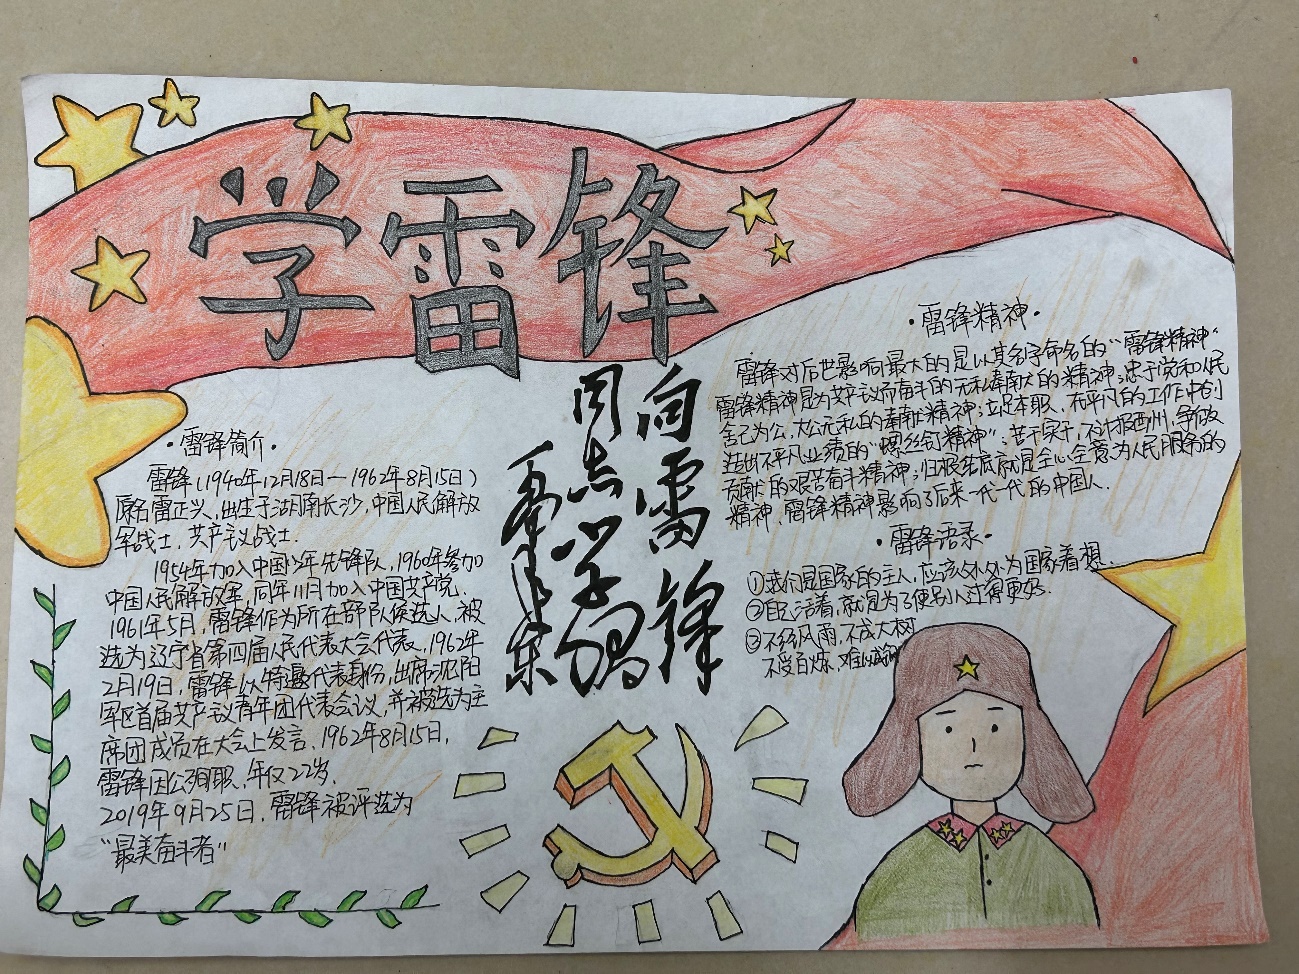 学雷锋
·雷锋简介·
雷锋(1940年12月18日—1962年8月15日)
原名雷正义,出生于湖南长沙,中国人民解放
军战士,共产主义战士.
1954年加入中国少年先锋队,1960年参加
中国人民解放军,同年11月加入中国共产党.
1961年5月,雷锋作为所在部队候选人,被
选为辽宁省第四届人民代表大会代表.1962年
2月19日,雷锋以特邀代表身份,出席沈阳
军区首届共产主义青年团代表会议,并被选为主
席团成员在大会上发言.1962年8月15日,
雷锋因公殉职,年仅22岁.
2019年9月25日,雷锋被评选为
“最美奋斗者”
向雷锋
同志学习
毛泽东
·雷锋精神·
雷锋对后世影响最大的是以其名字命名的“雷锋精神”
雷锋精神是为共产主义而奋斗的无私奉献的精神;忠于党和人民
舍己为公,大公无私的奉献精神;立足本职、在平凡的工作中创
造出不平凡业绩的“螺丝钉精神”;苦干实干,不计报酬,争做
贡献的艰苦奋斗精神;归根结底就是全心全意为人民服务的
精神.雷锋精神影响了后来一代一代的中国人.
·雷锋语录·
①我们是国家的主人,应该处处为国家着想.
②自己活着,就是为了使别人过得更好.
③不经风雨,不成大树
不受百炼,难以成钢